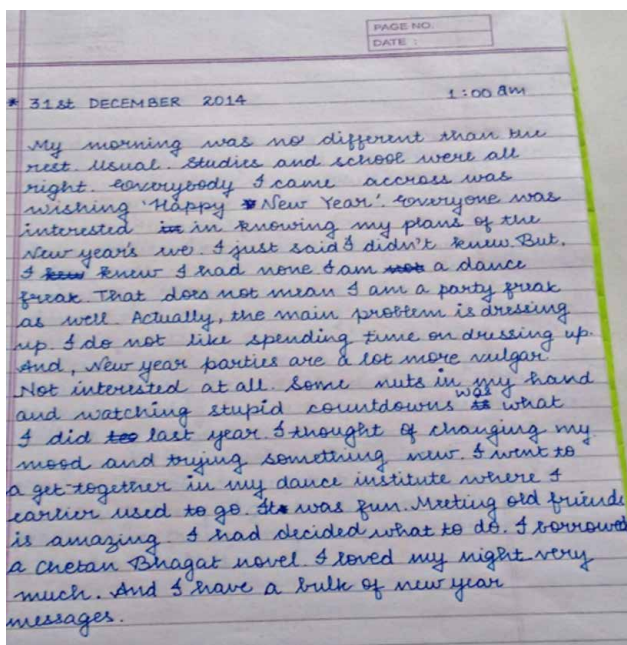 PAGE NO.
DATE :
* 31st DECEMBER 2014 1:00 am
My morning was no different than the
rest. Usual. Studies and school were all
right. Everybody I came accross was
wishing 'Happy New Year'. Everyone was
interested in knowing my plans of the
New year's eve. I just said I didn't knew. But,
I knew I had none I am a dance
freak. That does not mean I am a party freak
as well. Actually, the main problem is dressing
up. I do not like spending time on dressing up.
And, New year parties are a lot more vulgar
Not interested at all. Some nuts in my hand
and watching stupid countdowns was what
I did last year. I thought of changing my
mood and trying something new. I went to
a get-together in my dance institute where I
earlier used to go. It was fun. Meeting old friends
is amazing. I had decided what to do. I borrowed
a Chetan Bhagat novel. I loved my night very
much. And I have a bulk of new year
messages.